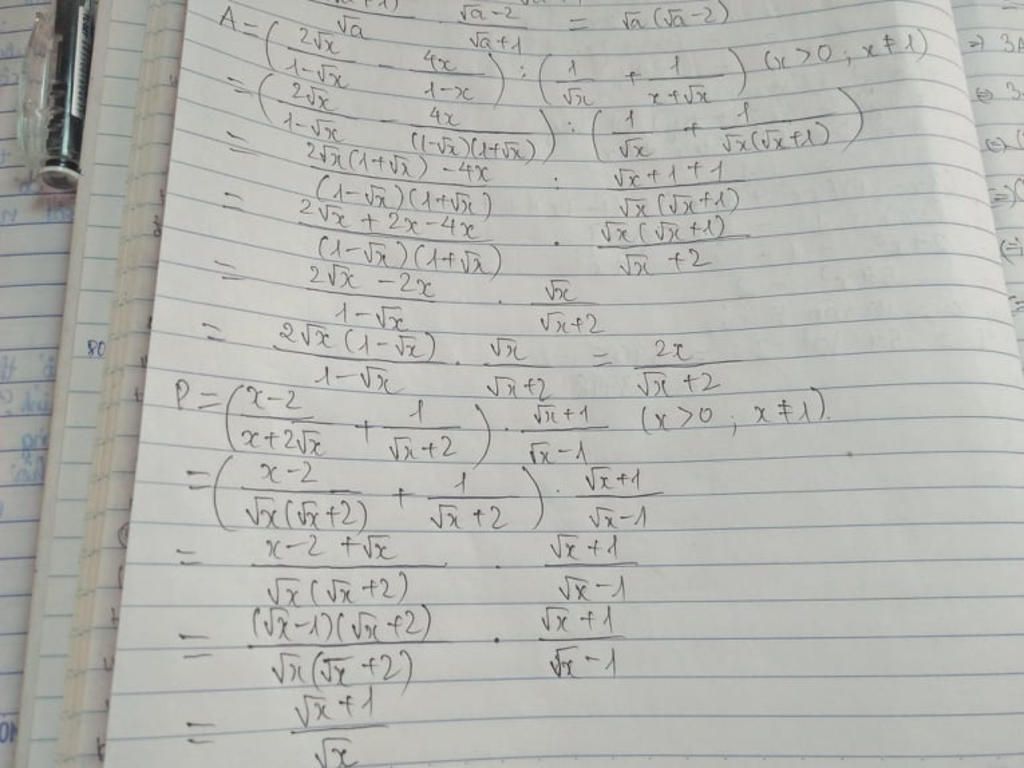 √a √a+1 = √a(√a-2)
A = (2√x/(1-√x) - 4x/(1-x)) : (1/√x + 1/(x+√x)) (x>0; x≠1)
= (2√x/(1-√x) - 4x/((1-√x)(1+√x))) : (1/√x + 1/(√x(√x+1)))
= (2√x(1+√x) - 4x)/((1-√x)(1+√x)) : (√x+1+1)/(√x(√x+1))
= (2√x + 2x - 4x)/((1-√x)(1+√x)) · √x(√x+1)/(√x+2)
= (2√x - 2x)/(1-√x) · √x/(√x+2)
= 2√x(1-√x)/(1-√x) · √x/(√x+2) = 2x/(√x+2)
P = ((x-2)/(x+2√x) + 1/(√x+2)) · (√x+1)/(√x-1) (x>0; x≠1).
= ((x-2)/(√x(√x+2)) + 1/(√x+2)) · (√x+1)/(√x-1)
= (x-2+√x)/(√x(√x+2)) · (√x+1)/(√x-1)
= (√x-1)(√x+2)/(√x(√x+2)) · (√x+1)/(√x-1)
= (√x+1)/√x
80